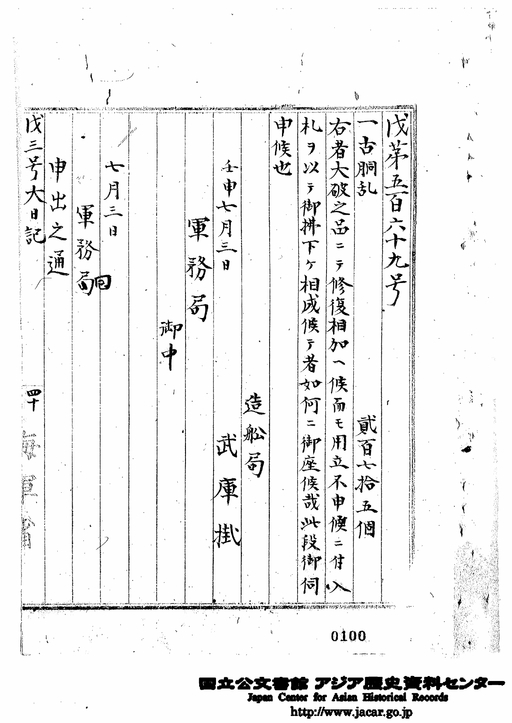 戊第五百六十九号
一古胴乱 貳百七拾五個
右者大破之品ニテ修復相加ヘ候而モ用立不申候ニ付入
札ヲ以テ御拂下ケ相成候テ者如何ニ御座候哉此段御伺
申候也
造舩局
武庫掛
壬申七月三日
軍務局
御中
七月三日
軍務局 回
申出之通
戊三号大日記
四十
海軍省
0100
国立公文書館 アジア歴史資料センター
Japan Center for Asian Historical Records
http://www.jacar.go.jp